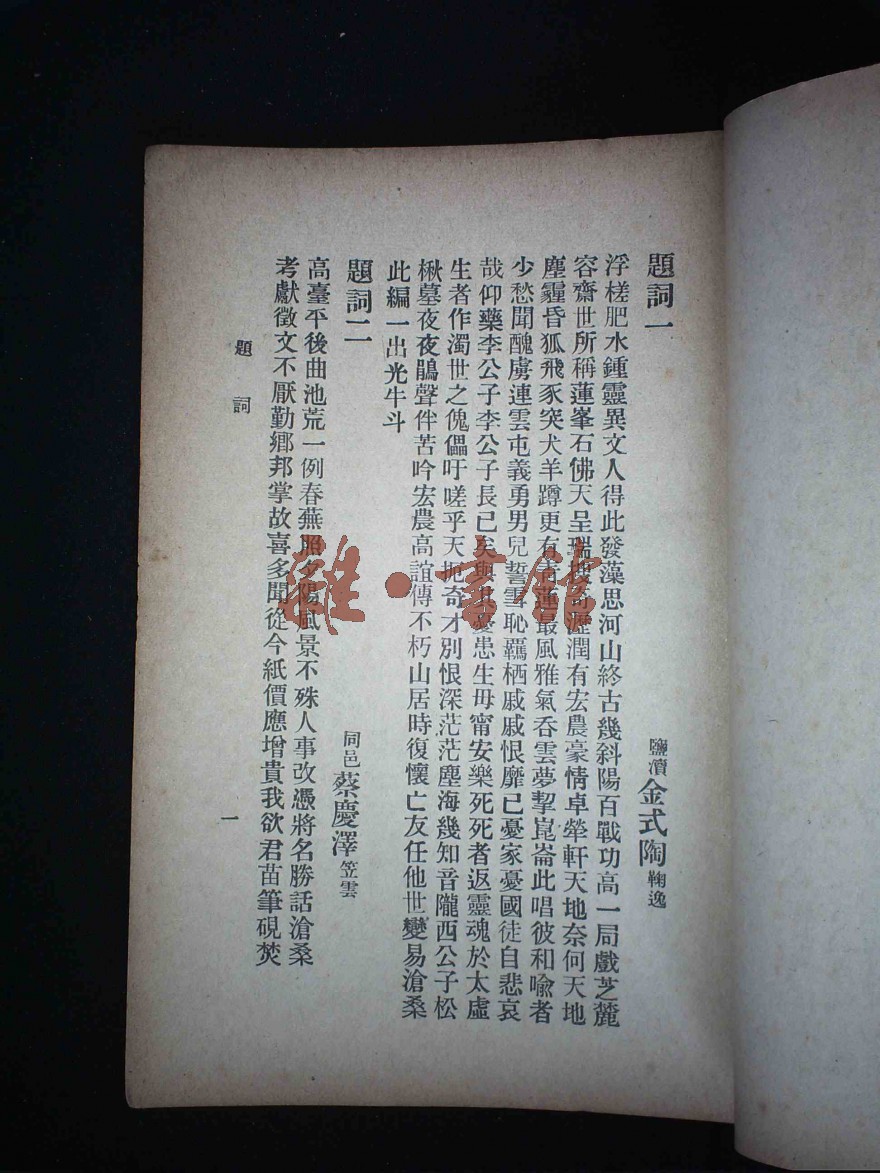 題詞一
鹽瀆 金式陶 鞠逸
浮槎肥水鍾靈異文人得此發藻思河山終古幾斜陽百戰功高一局戲芝麓
容齋世所稱蓮峯石佛天呈瑞搜奇瀝潤有宏農豪情卓犖軒天地奈何天地
塵霾昏狐飛豕突犬羊蹲更有青蓮最風雅氣吞雲夢挈崑崙此唱彼和喩者
少愁聞醜虜連雲屯義勇男兒誓雪恥羈栖戚戚恨靡已憂家憂國徒自悲哀
哉仰藥李公子李公子長已矣與其憂患生毋甯安樂死死者返靈魂於太虛
生者作濁世之傀儡吁嗟乎天扼奇才別恨深茫茫塵海幾知音隴西公子松
楸墓夜夜鵑聲伴苦吟宏農高誼傳不朽山居時復懷亡友任他世變易滄桑
此編一出光牛斗
題詞二
同邑 蔡慶澤 笠雲
高臺平後曲池荒一例春燕照夕陽風景不殊人事改憑將名勝話滄桑
考獻徵文不厭勤鄉邦掌故喜多聞從今紙價應增貴我欲君苗筆硯焚
題詞
一
雜·書館